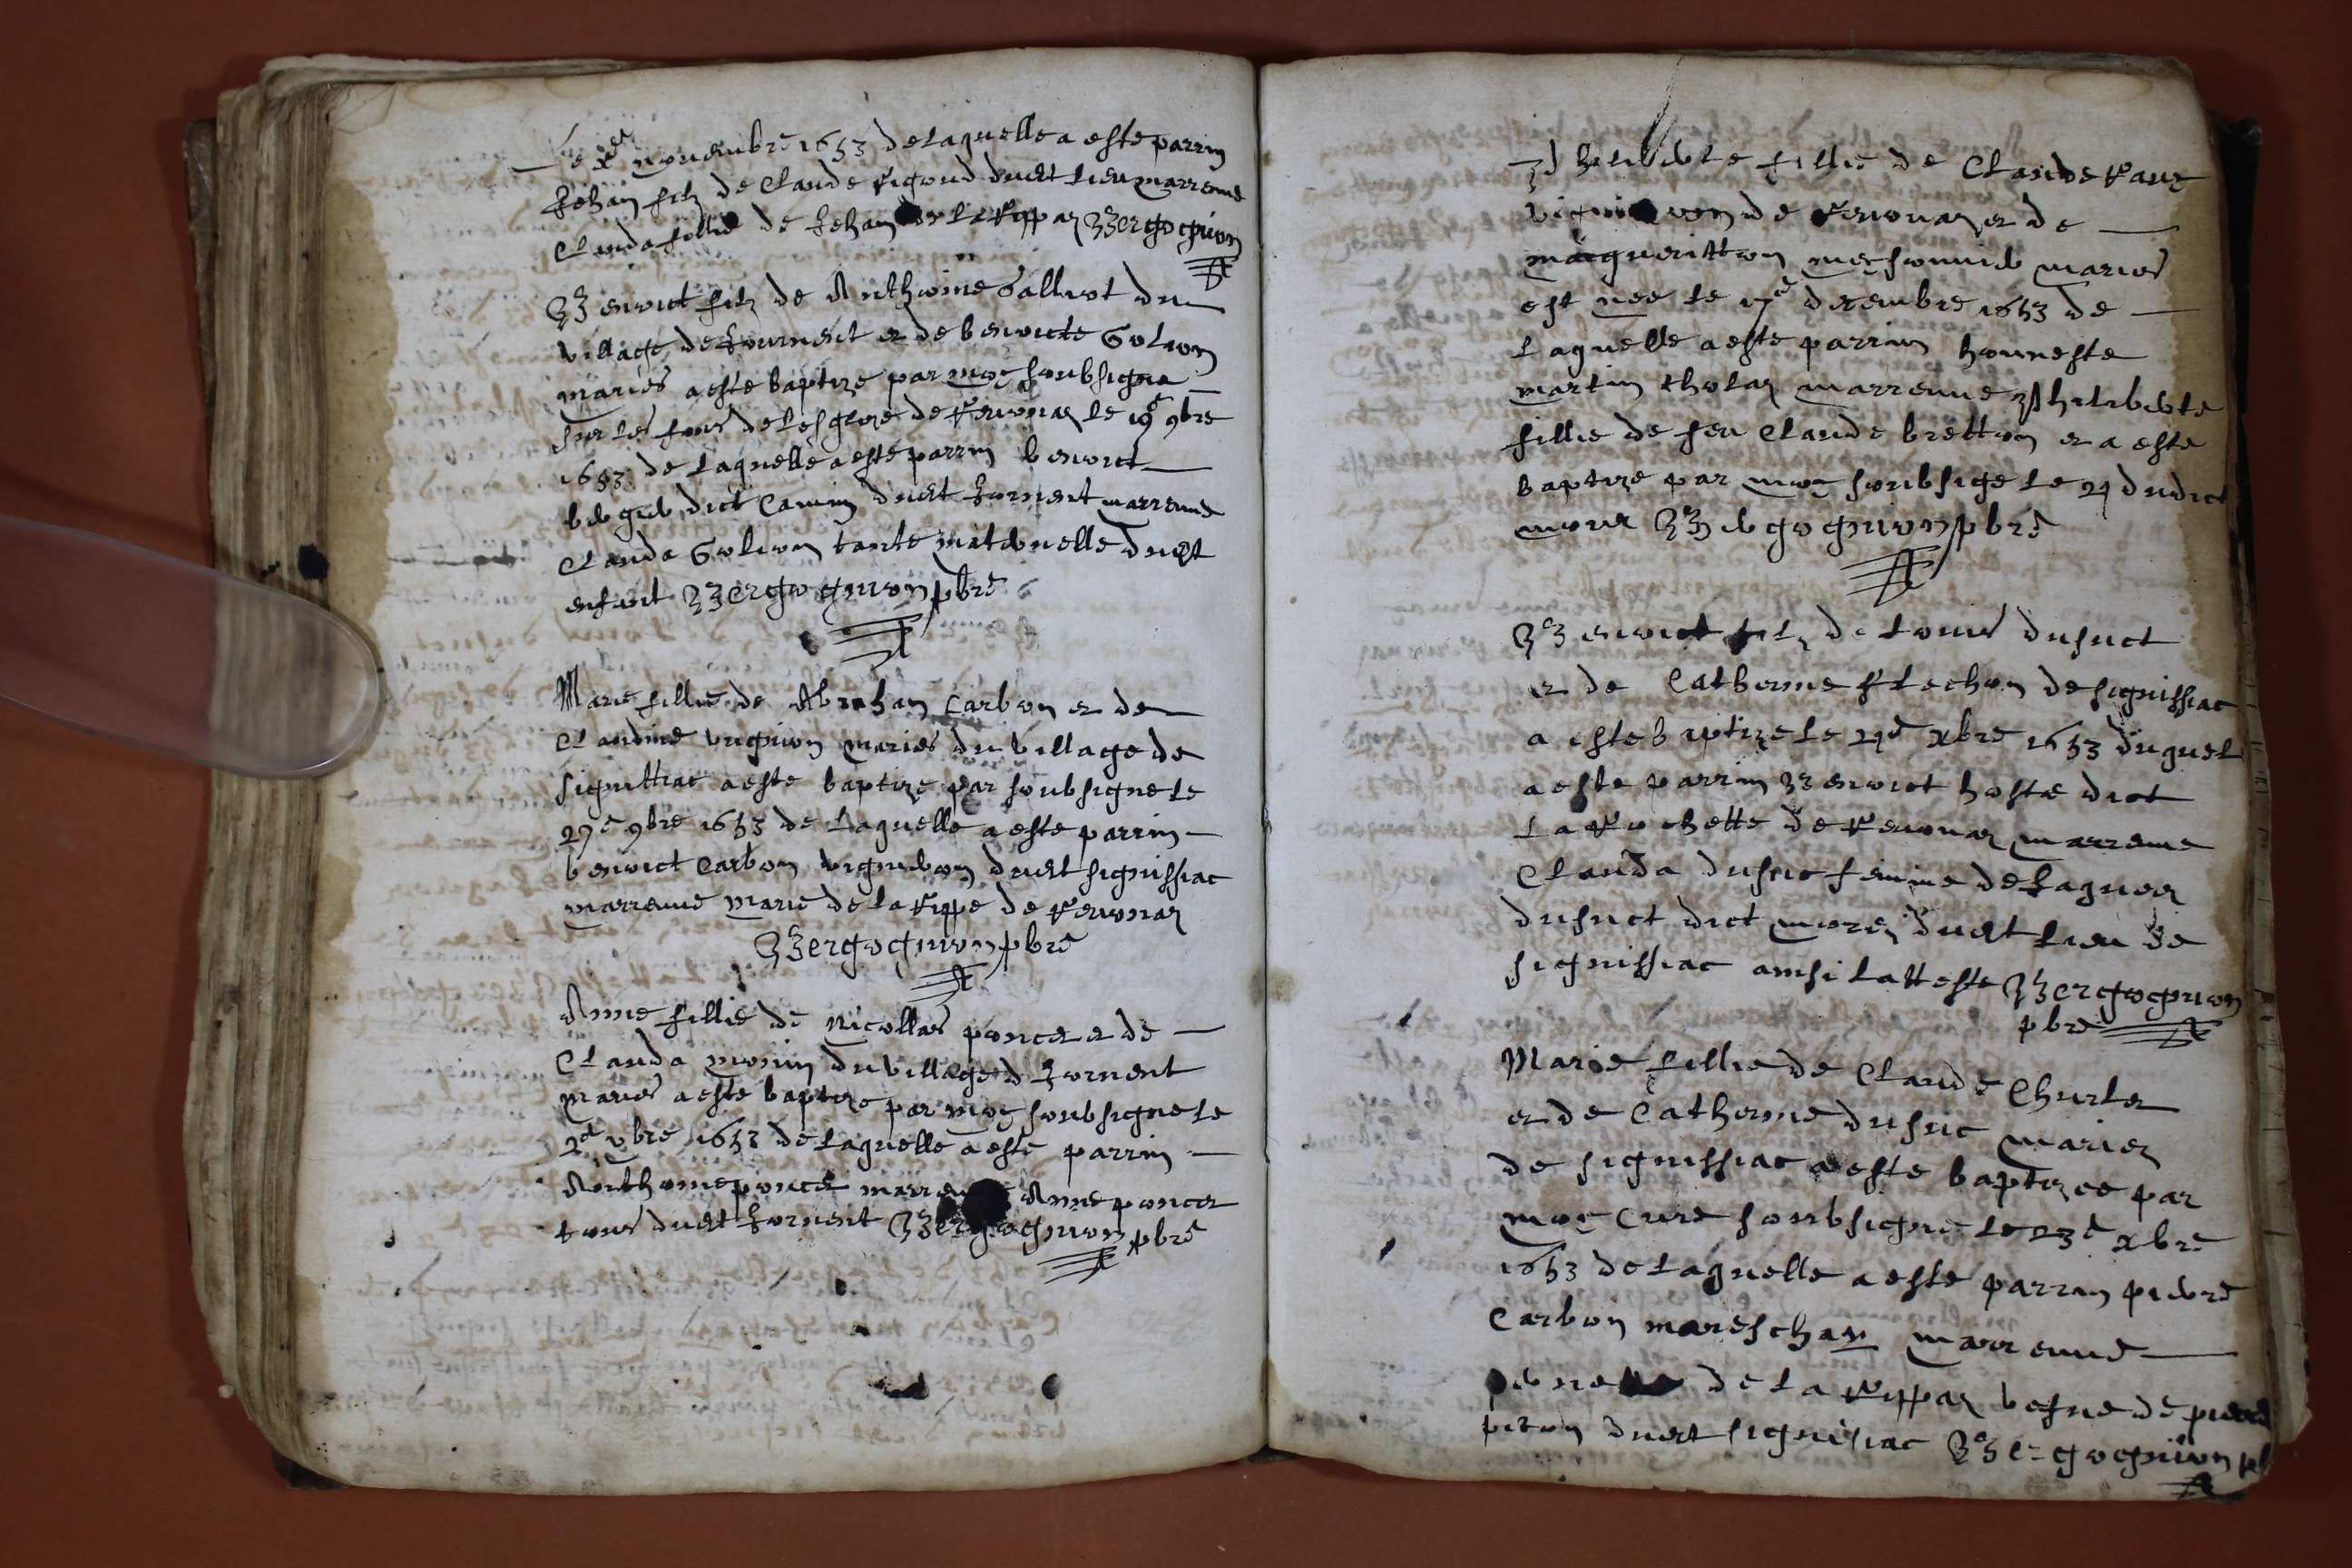 Le xe novembre 1653 de laquelle a este parrin
Jehan filz de Claude Rigoud dudt lieu marrenne
Clauda fillie de Jehan de la Rippaz Bergognion
Benoict filz de Anthoine Salliot du
village de Fournent et de benoicte Golion
maries a este baptize par moy soubsigne
sur les fons de lesglize de Revonaz le 19e 9bre
1653 de laquelle a este parrin benoict
dict Camin dudt Fornent marrenne
Clauda Golion tante maternelle dudt
enfant Bergognion pbre
Marie fillie de Abraham Carbon et de
Claudine vugnion maries du village de
signissiac a este baptize par soubsigne le
27e 9bre 1653 de laquelle a este parrin
benoict Carbon vigneron dudt signissiac
marrenne Marie de la Rippe de Revonaz
Bergognion pbre
Anne fillie de Nicollas poncet et de
Clauda monin du village d Fornent
maries a este baptize par moy soubsigne le
2e xbre 1653 de laquelle a este parrin
Anthoine poncet marrenne Anne poncet
tous dudt Fornent Bergognion pbre
Philiberte fillie de Claude Ravy
vigneron de Revonaz et de
margueritton meysonnier maries
est nee le 17e decembre 1653 de
laquelle a este parrin honneste
martin tholaz marrenne Philiberte
fillie de feu Claude bretton et a este
baptize par moy soubsige le 21 dudict
mour Bergognion pbre
Benoict filz de Louis dusuct
et de Catherine flechon de signissiac
a este baptize le 21e xbre 1653 duquel
a este parrin Benoict hoste dict
la Rochette de Revonaz marrenne
Clauda dusuc femme de Jaques
dusuct dict morez dudt lieu de
signissiac ainsi latteste Bergognion
pbre
Marie fillie de Claude Churlet
et de Catherine dusuc mariez
de signissiac a este baptizee par
moy Cure soubsigne le 23e xbre
1653 de laquelle a este parrin pierre
Carbon mareschaz marrenne
pernette de la Rippaz vefve de pierre
piron dudt signisiac Bergognion pb